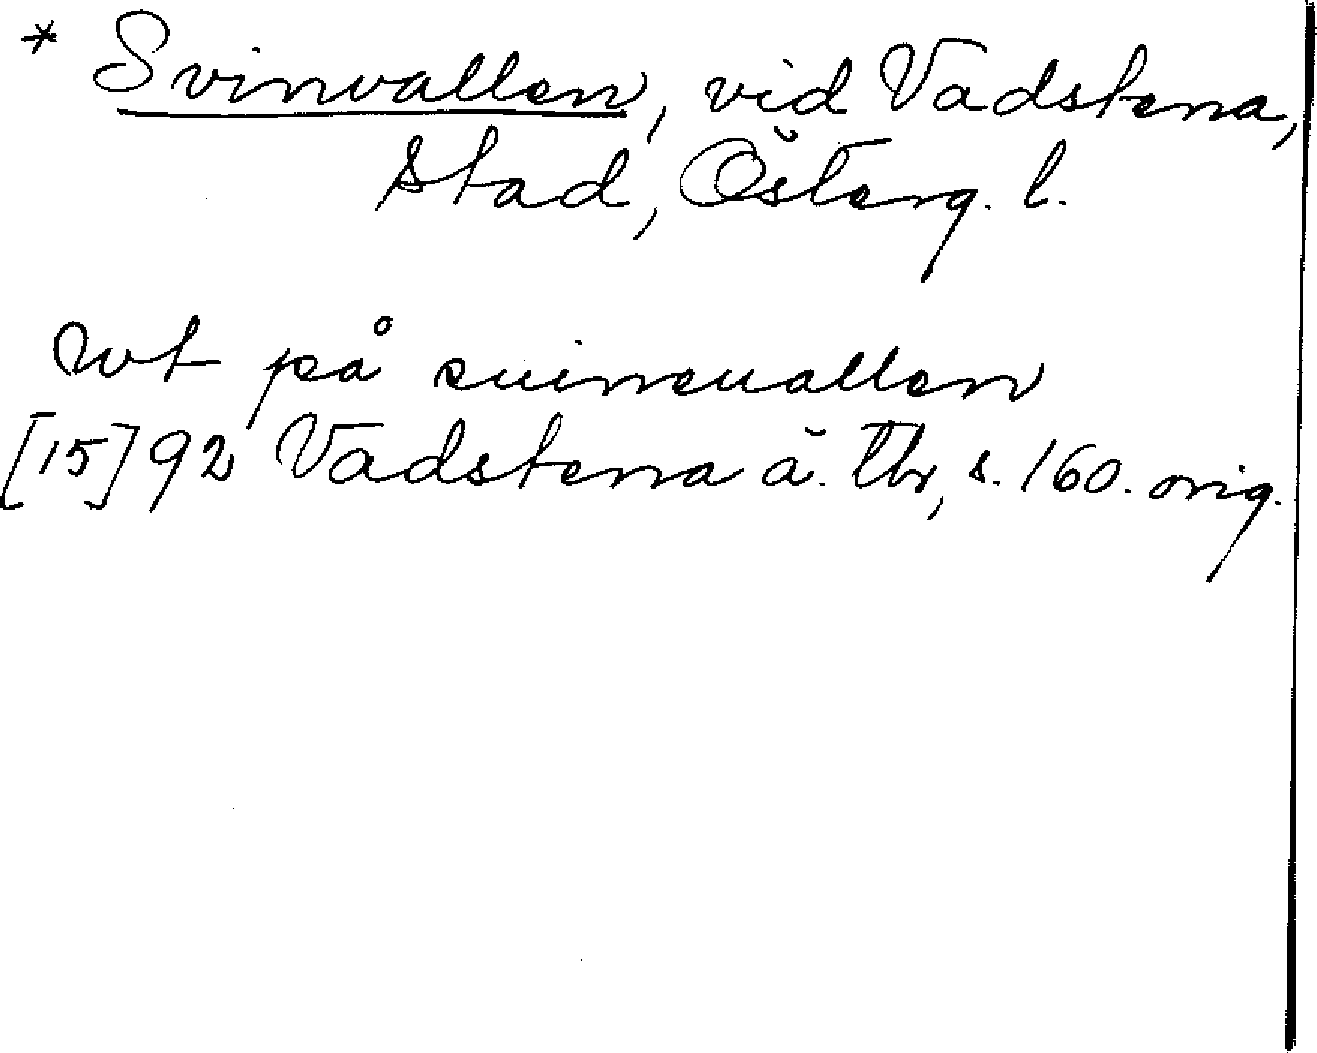 * Svinvallen, vid Vadstena,
stad, Österg. l.
wt på suineuallen
[15]92 Vadstena ä. Tb, s. 160. orig.